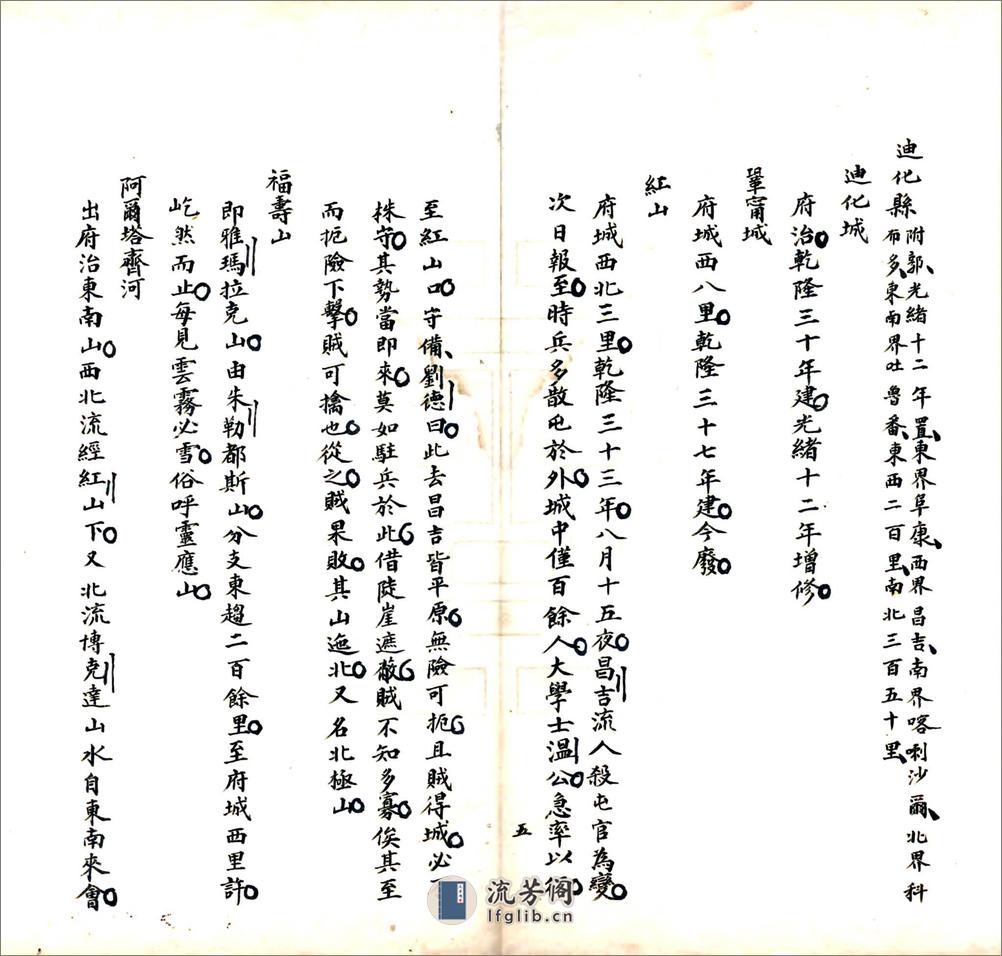 迪化縣附郭光緒十二年置東界阜康西界昌吉南界喀喇沙爾北界科
布多東南界吐魯番東西二百里南北三百五十里
迪化城
府治乾隆三十年建光緒十二年增修
鞏甯城
府城西八里乾隆三十七年建今廢
紅山
府城西北三里乾隆三十三年八月十五夜昌吉流人殺屯官為變
次日報至時兵多散屯於外城中僅百餘人大學士温公急率以
五
至紅山口守備劉德曰此去昌吉皆平原無險可扼且賊得城必
株守其勢當即來莫如駐兵於此借陡崖遮蔽賊不知多寡俟其至
而扼險下擊賊可擒也從之賊果敗其山迤北又名北極山
福壽山
即雅瑪拉克山由朱勒都斯山分支東趨二百餘里至府城西里許
屹然而止每見雲霧必雪俗呼靈應山
阿爾塔齊河
出府治東南山西北流經紅山下又北流博克達山水自東南來會
流芳阁
lfglib.cn